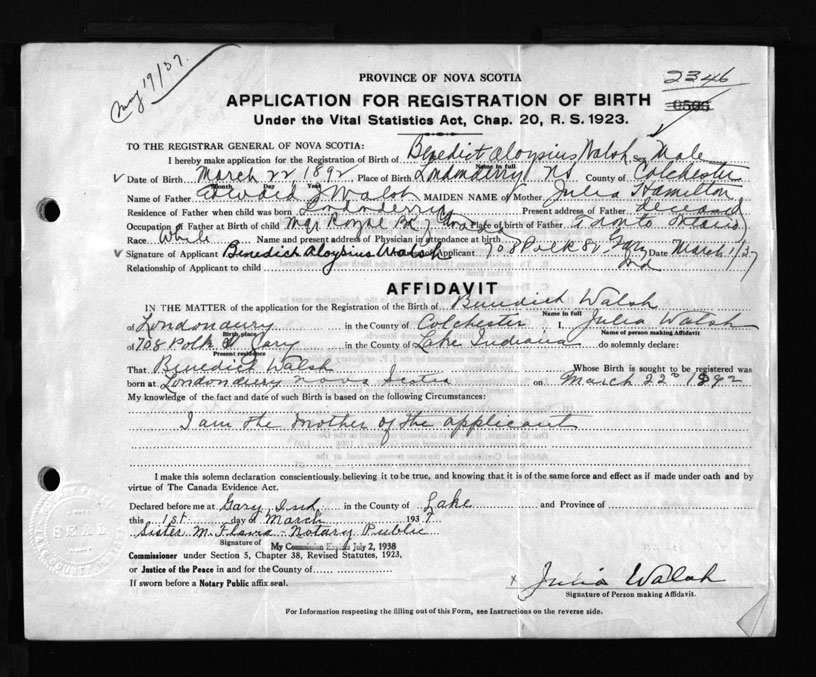 May 19/37.
PROVINCE OF NOVA SCOTIA
2346
APPLICATION FOR REGISTRATION OF BIRTH
Under the Vital Statistics Act, Chap. 20, R. S. 1923.
TO THE REGISTRAR GENERAL OF NOVA SCOTIA:
I hereby make application for the Registration of Birth of Benedict Aloysius Walsh Sex Male
Name in full
Date of Birth March 22 1892 Place of Birth Londonderry NS County of Colchester
Month Day Year
Name of Father Edward J Walsh MAIDEN NAME of Mother Julia Hamilton
Residence of Father when child was born Londonderry Present address of Father deceased
Occupation of Father at Birth of child Mgr Royal Bk Canada Place of birth of Father Toronto Ontario
Race White Name and present address of Physician in attendance at birth
Signature of Applicant Benedict Aloysius Walsh Applicant 708 Polk St Gary Date March 1/37
Relationship of Applicant to child Ind
AFFIDAVIT
IN THE MATTER of the application for the Registration of the Birth of Benedict Walsh
Name in full
of Londonderry in the County of Colchester I, Julia Walsh
Birth place Name of person making Affidavit
of 708 Polk St Gary in the County of Lake Indiana do solemnly declare:
Present residence
That Benedict Walsh Whose Birth is sought to be registered was
born at Londonderry Nova Scotia on March 22nd 1892
My knowledge of the fact and date of such Birth is based on the following Circumstances:
I am the mother of the applicant
I make this solemn declaration conscientiously believing it to be true, and knowing that it is of the same force and effect as if made under oath and by
virtue of The Canada Evidence Act.
Declared before me at Gary, Ind. in the County of Lake and Province of
this 1st day of March 1937
Sister M. Notary Public
Signature of My Commission Expires July 2, 1938
Commissioner under Section 5, Chapter 38, Revised Statutes, 1923,
or Justice of the Peace in and for the County of
If sworn before a Notary Public affix seal.
x Julia Walsh
Signature of Person making Affidavit.
For Information respecting the filling out of this Form, see Instructions on the reverse side.
SEAL